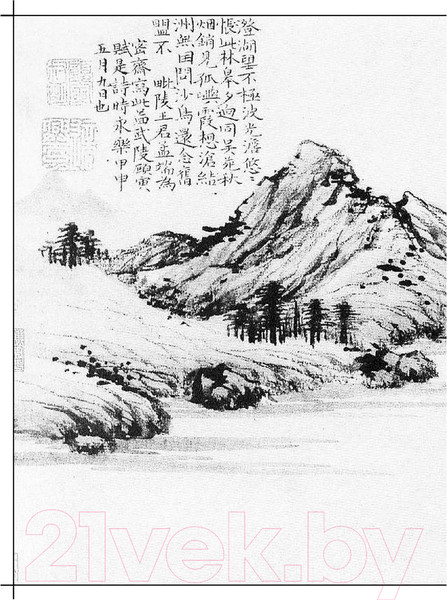 澄湖望不極波光澹悠
悵此林皋夕迥同吳乘秋
烟銷見孤嶼霞想滄結
洲無因問沙鳥還念舊
盟不 毗陵王君孟端為
密齋寫此面武陵頤寅
賦是詩時永樂甲申
五月九日也
21vek.by